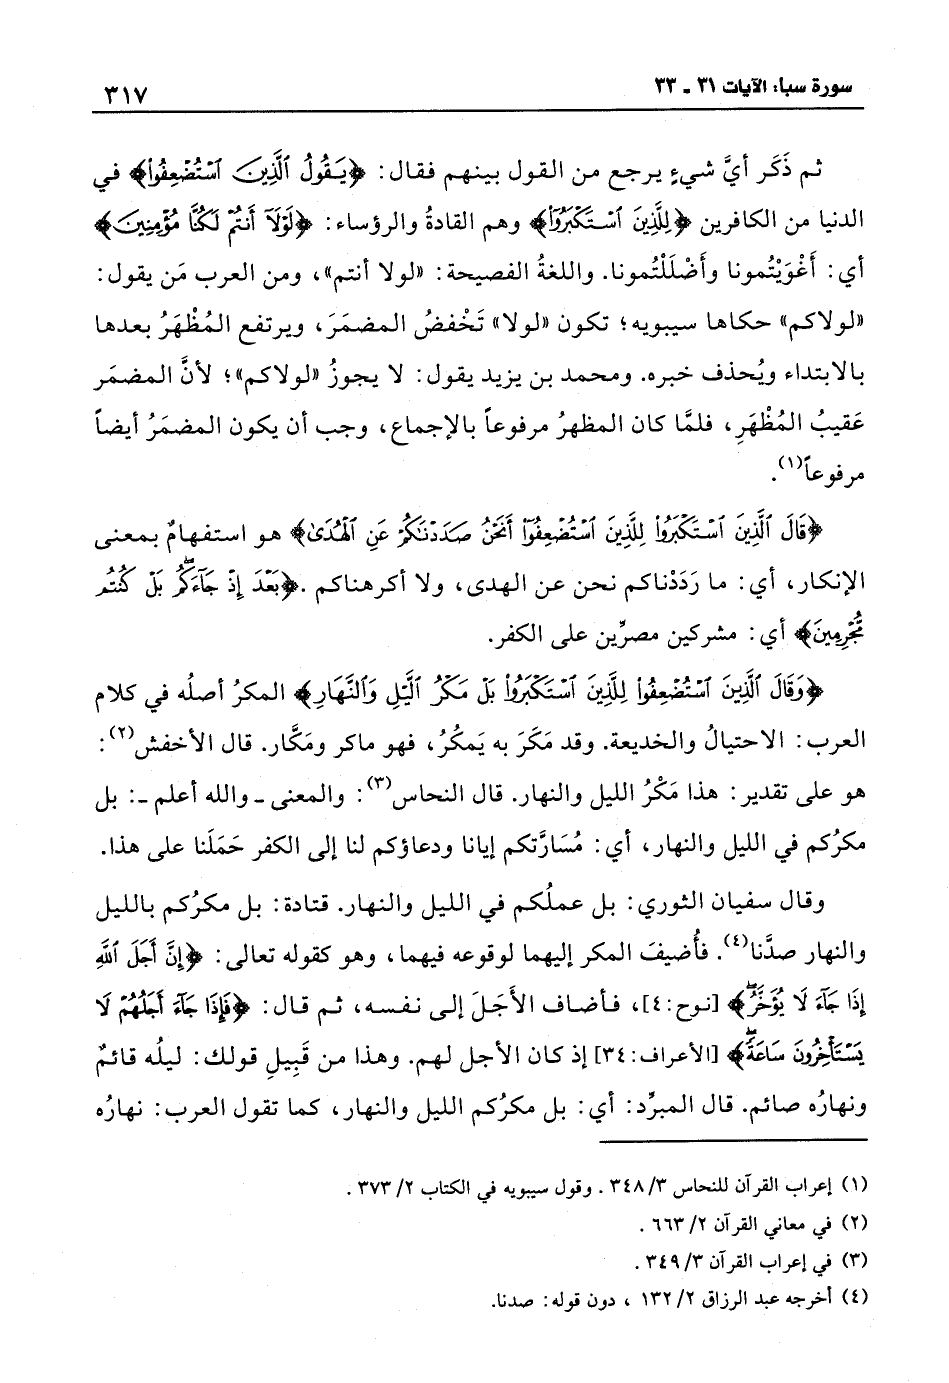 سورة سبأ: الآيات ٣١ ـ ٣٣
٣١٧
ثم ذَكَر أيَّ شيءٍ يرجع من القول بينهم فقال: ﴿يَقُولُ ٱلَّذِينَ ٱسْتُضْعِفُوا۟﴾ في
الدنيا من الكافرين ﴿لِلَّذِينَ ٱسْتَكْبَرُوا۟﴾ وهم القادةُ والرؤساء: ﴿لَوْلَآ أَنتُمْ لَكُنَّا مُؤْمِنِينَ﴾
أي: أَغْوَيْتُمونا وأَضْلَلْتُمونا. واللغةُ الفصيحة: «لولا أنتم»، ومن العرب مَن يقول:
«لولاكم» حكاها سيبويه؛ تكون «لولا» تَخْفضُ المضمَرَ، ويرتفع المُظْهَرُ بعدها
بالابتداء ويُحذف خبره. ومحمد بن يزيد يقول: لا يجوزُ «لولاكم»؛ لأنَّ المضمَر
عَقيبُ المُظْهَرِ، فلمَّا كان المظهرُ مرفوعاً بالإجماع، وجب أن يكون المضمَرُ أيضاً
مرفوعاً(١).
﴿قَالَ ٱلَّذِينَ ٱسْتَكْبَرُوا۟ لِلَّذِينَ ٱسْتُضْعِفُوٓا۟ أَنَحْنُ صَدَدْنَٰكُمْ عَنِ ٱلْهُدَىٰ﴾ هو استفهامٌ بمعنى
الإنكار، أي: ما رَدَدْناكم نحن عن الهدى، ولا أكرهناكم. ﴿بَعْدَ إِذْ جَآءَكُمۖ بَلْ كُنتُم
مُّجْرِمِينَ﴾ أي: مشركين مصرِّين على الكفر.
﴿وَقَالَ ٱلَّذِينَ ٱسْتُضْعِفُوا۟ لِلَّذِينَ ٱسْتَكْبَرُوا۟ بَلْ مَكْرُ ٱلَّيْلِ وَٱلنَّهَارِ﴾ المكرُ أصلُه في كلام
العرب: الاحتيالُ والخديعة. وقد مَكَرَ به يَمكُرُ، فهو ماكر ومَكَّار. قال الأخفش(٢):
هو على تقدير: هذا مَكْرُ الليل والنهار. قال النحاس(٣): والمعنى ـ والله أعلم ـ: بل
مكرُكم في الليل والنهار، أي: مُسَارَّتكم إيانا ودعاؤكم لنا إلى الكفر حَمَلَنا على هذا.
وقال سفيان الثوري: بل عملُكم في الليل والنهار. قتادة: بل مكرُكم بالليل
والنهار صدَّنا(٤). فأُضيفَ المكر إليهما لوقوعه فيهما، وهو كقوله تعالى: ﴿إِنَّ أَجَلَ ٱللَّهِ
إِذَا جَآءَ لَا يُؤَخَّرُۖ﴾ [نوح: ٤]، فأضاف الأَجَلَ إلى نفسه، ثم قال: ﴿فَإِذَا جَآءَ أَجَلُهُمْ لَا
يَسْتَأْخِرُونَ سَاعَةًۖ﴾ [الأعراف: ٣٤] إذ كان الأجل لهم. وهذا من قَبِيلِ قولك: ليلُه قائمٌ
ونهارُه صائم. قال المبرِّد: أي: بل مكرُكم الليل والنهار، كما تقول العرب: نهارُه
(١) إعراب القرآن للنحاس ٣/ ٣٤٨. وقول سيبويه في الكتاب ٢/ ٣٧٣.
(٢) في معاني القرآن ٢/ ٦٦٣.
(٣) في إعراب القرآن ٣/ ٣٤٩.
(٤) أخرجه عبد الرزاق ٢/ ١٣٢، دون قوله: صدنا.